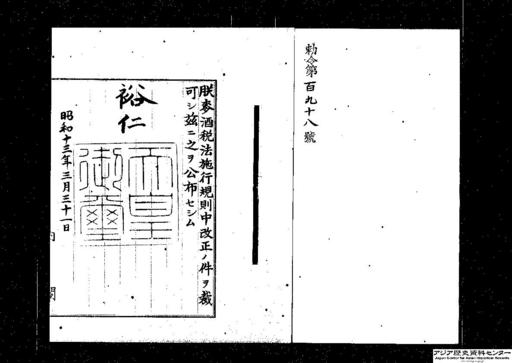 勅令第百九十八號
朕麥酒税法施行規則中改正ノ件ヲ裁
可シ茲ニ之ヲ公布セシム
裕仁
天皇
御璽
昭和十三年三月三十一日
内閣
アジア歴史資料センター
Japan Center for Asian Historical Records